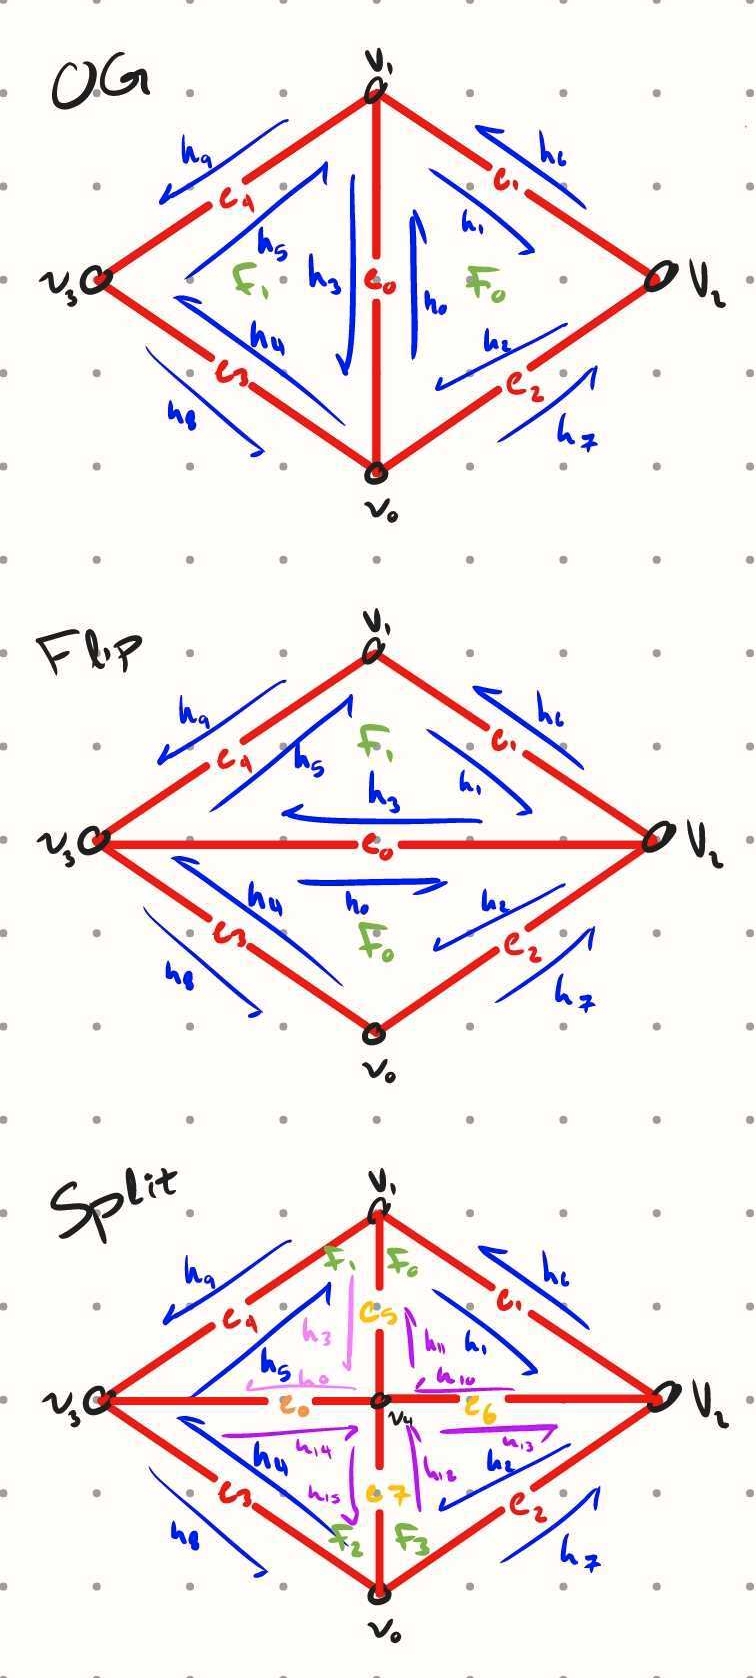 OG
v₁
h₉
h₆
e₄
e₁
h₅
h₁
v₃
F₁
h₃
e₀
F₀
V₂
h₀
h₄
h₂
e₃
e₂
h₈
h₇
v₀
Flip
v₁
h₉
h₆
e₄
e₁
F₁
h₅
h₃
h₁
v₃
e₀
V₂
h₄
h₀
h₂
e₃
F₀
e₂
h₈
h₇
v₀
Split
v₁
F₁ F₀
h₉
h₆
e₄
e₅
e₁
h₃
h₁₁
h₁
h₅
h₀
h₁₀
v₃
e₀
v₄
e₆
V₂
h₁₄
h₁₃
h₄
h₁₂
h₂
e₃
h₁₅
e7
e₂
h₈
F₂ F₃
h₇
v₀